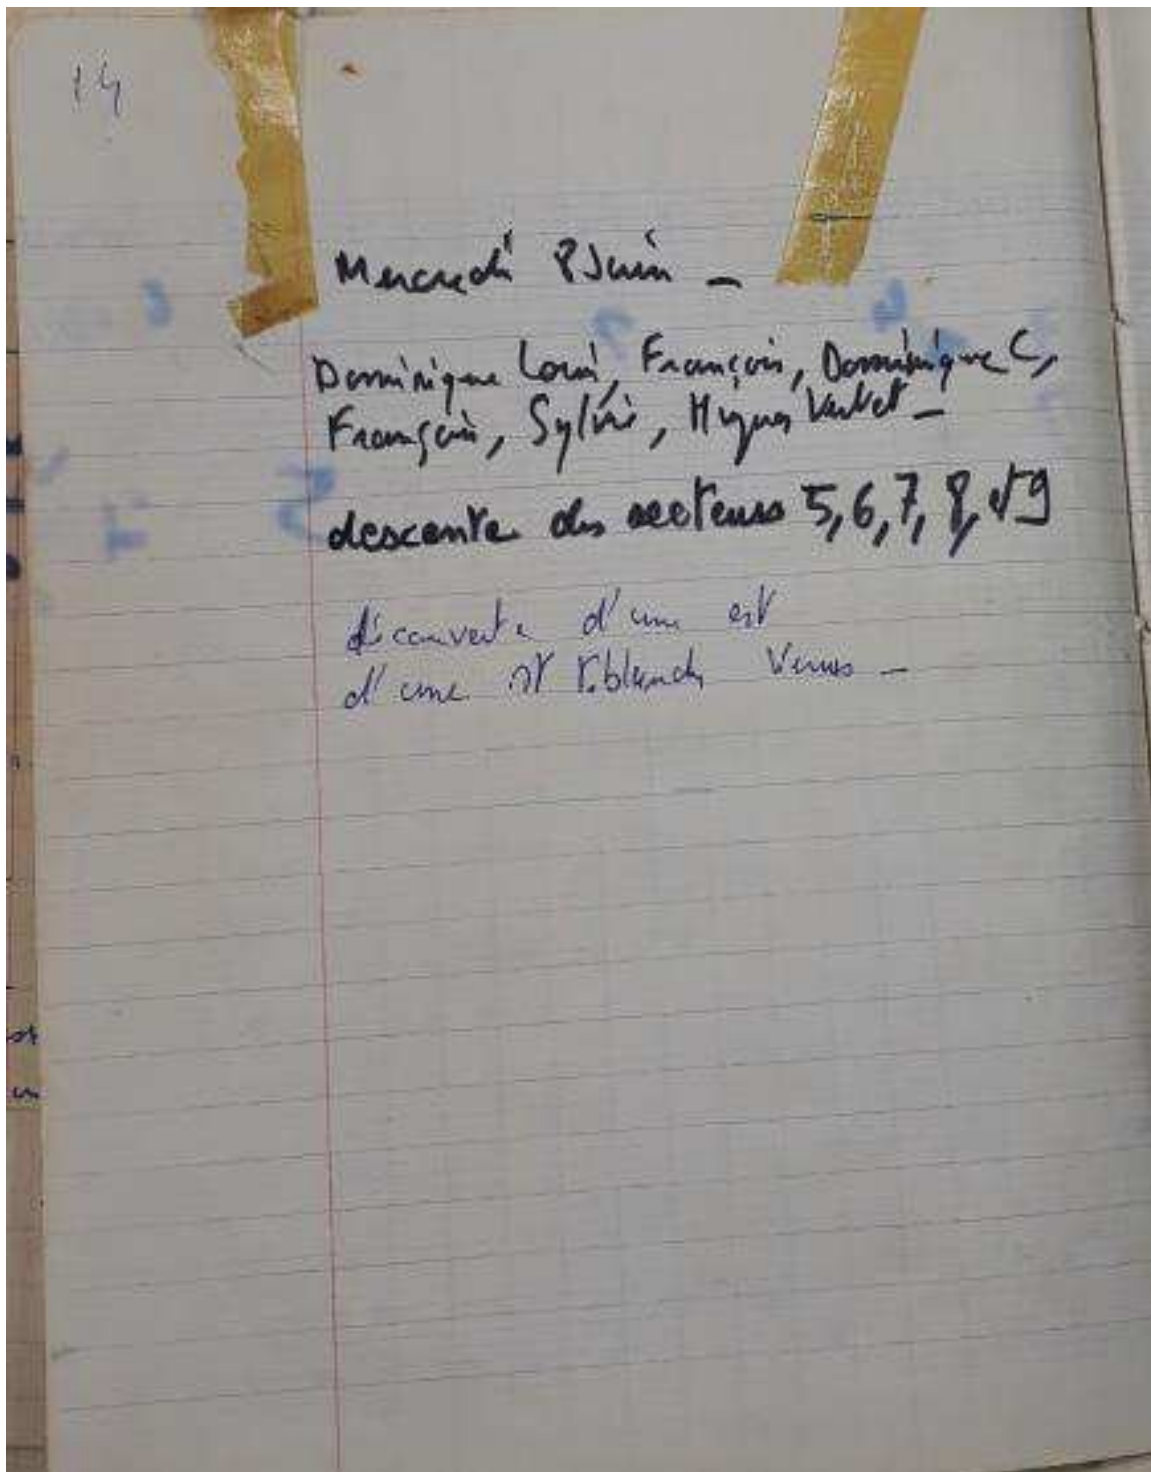 14
Mercredi 8 Juin -
Dominique Louis, François, Dominique C,
François, Sylvie, Hugues Verbet -
descente des secteurs 5, 6, 7, 8, et 9
découverte d'une est
d'une et blanche Venus -